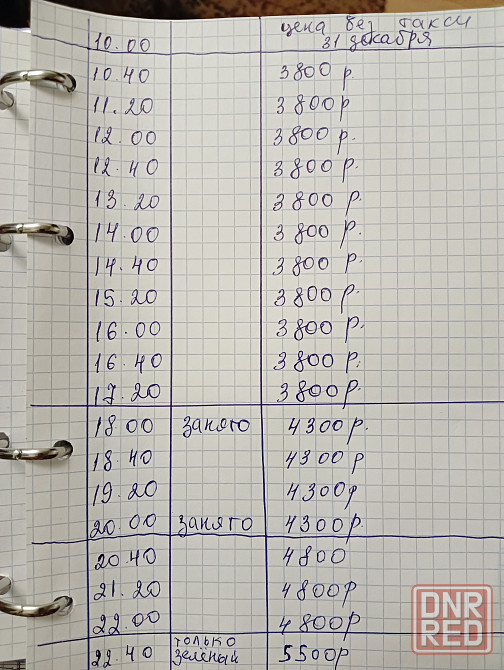 цена без такси
10.00 31 декабря
10.40 3800 р.
11.20 3800р
12.00 3800р.
12.40 3800 р.
13.20 3800 р.
14.00 3800 р.
14.40 3800 р.
15.20 3800 р.
16.00 3800 р.
16.40 3800 р.
17.20 3800р.
18.00 занято 4300р.
18.40 4300 р
19.20 4300р
20.00 занято 4300р.
20.40 4800
21.20 4800р
22.00 4800р
только
22.40 зелёный 5500р
DNR
RED